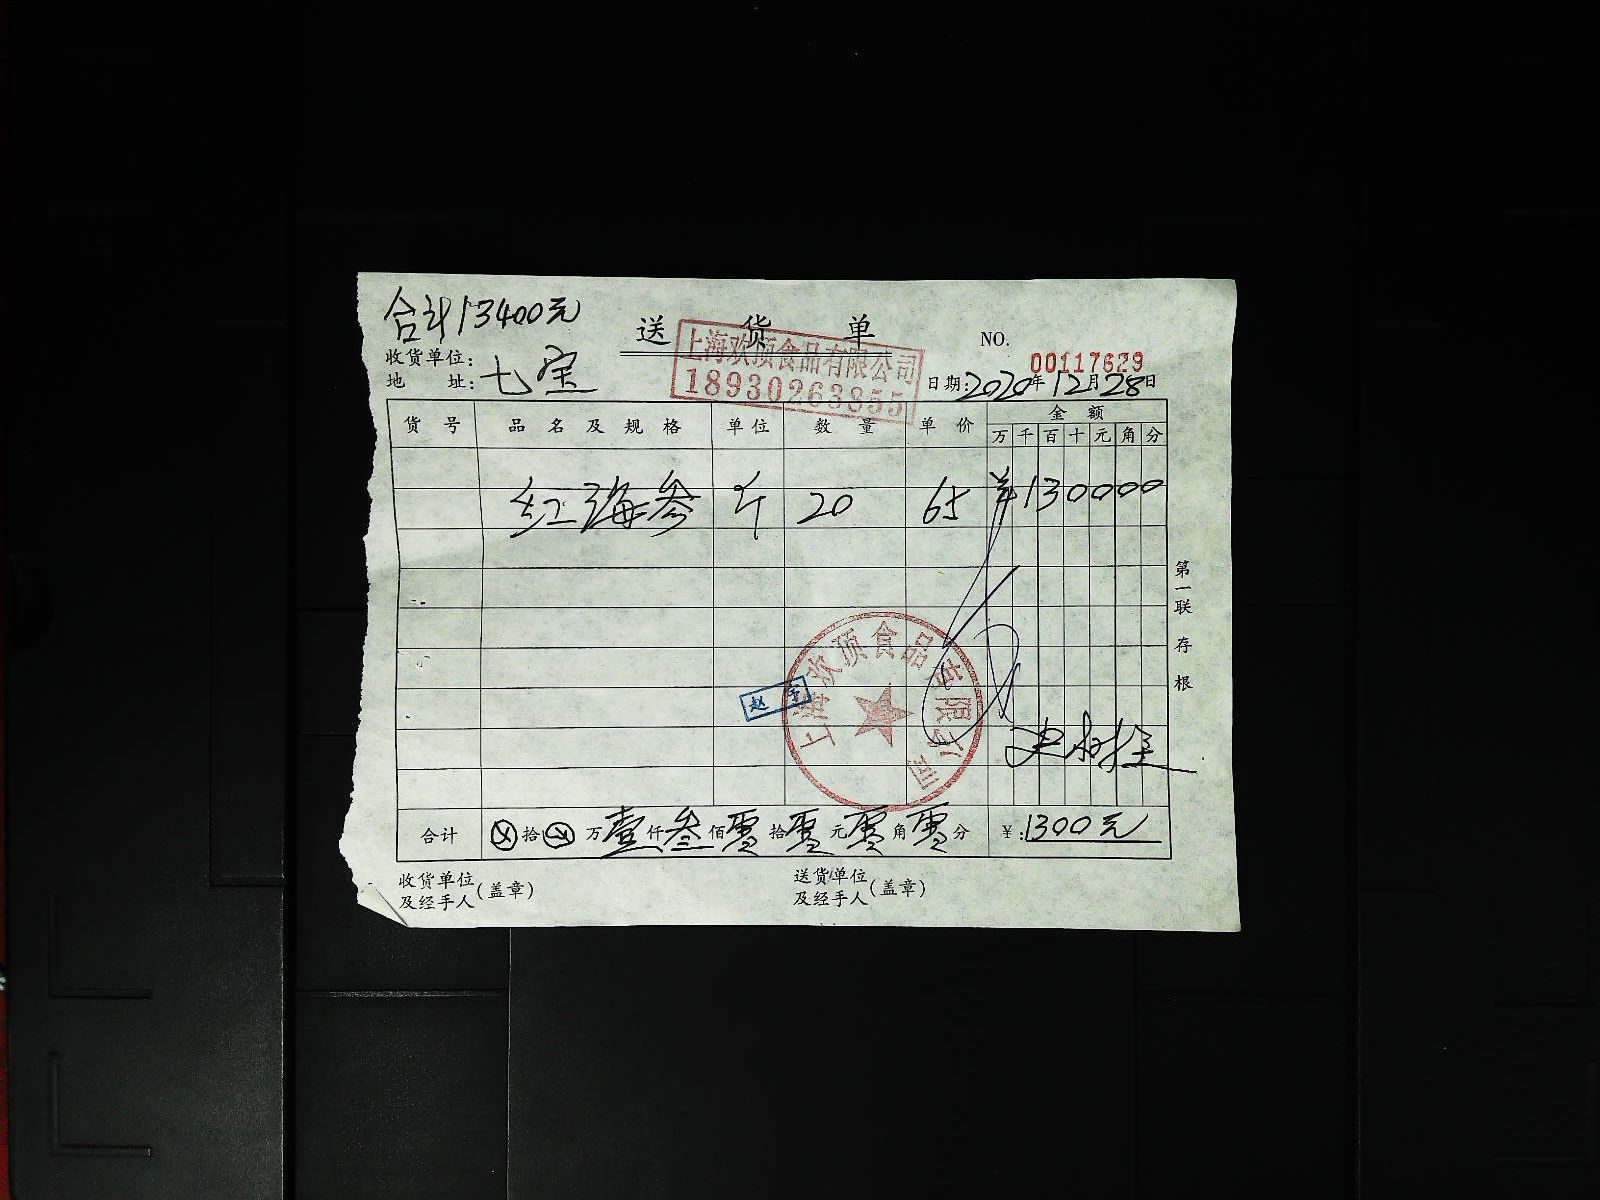 合计13400元
送货单
上海欢顶食品有限公司
18930263855
NO.
00117629
收货单位:
地址: 七宝
日期: 2020年12月28日
货号 品名及规格 单位 数量 单价 金额
万 千 百 十 元 角 分
红海参 斤 20 65 ¥130000
第一联 存根
赵
上海欢顶食品有限公司
合计 ⊗拾⊗万壹仟叁佰零拾零元零角零分 ¥:1300元
收货单位
及经手人(盖章)
送货单位
及经手人(盖章)